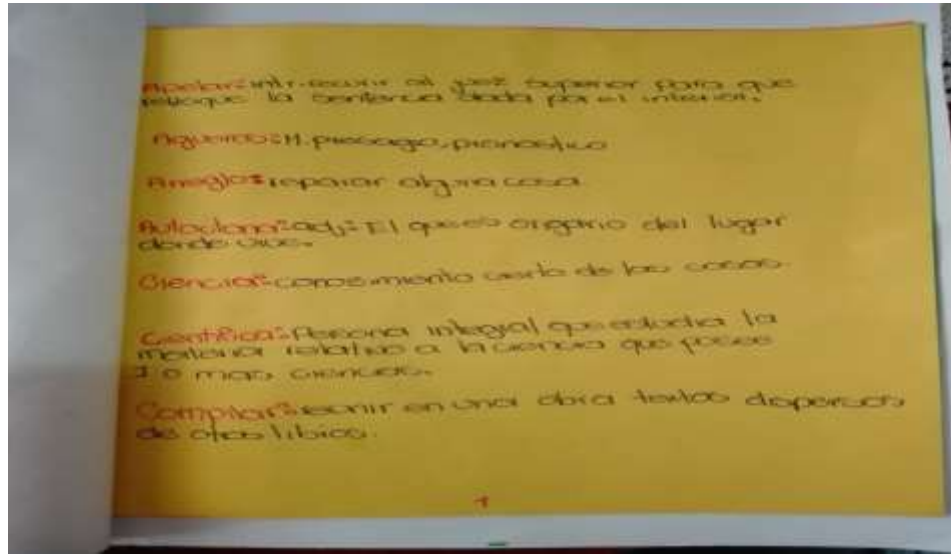 Apelar: intr. recurrir al juez superior para que
revoque la sentencia dada por el inferior.
M. presagio, pronostico
Arreglo: reparar alguna cosa
adj: El que es del lugar
donde vive.
Ciencia: conocimiento cierto de las cosas.
Científica: Persona integral que estudia la
materia relativo a la ciencia que posee
1 o mas ciencias.
Compilar: reunir en una obra textos dispersos
de otros libros.
1